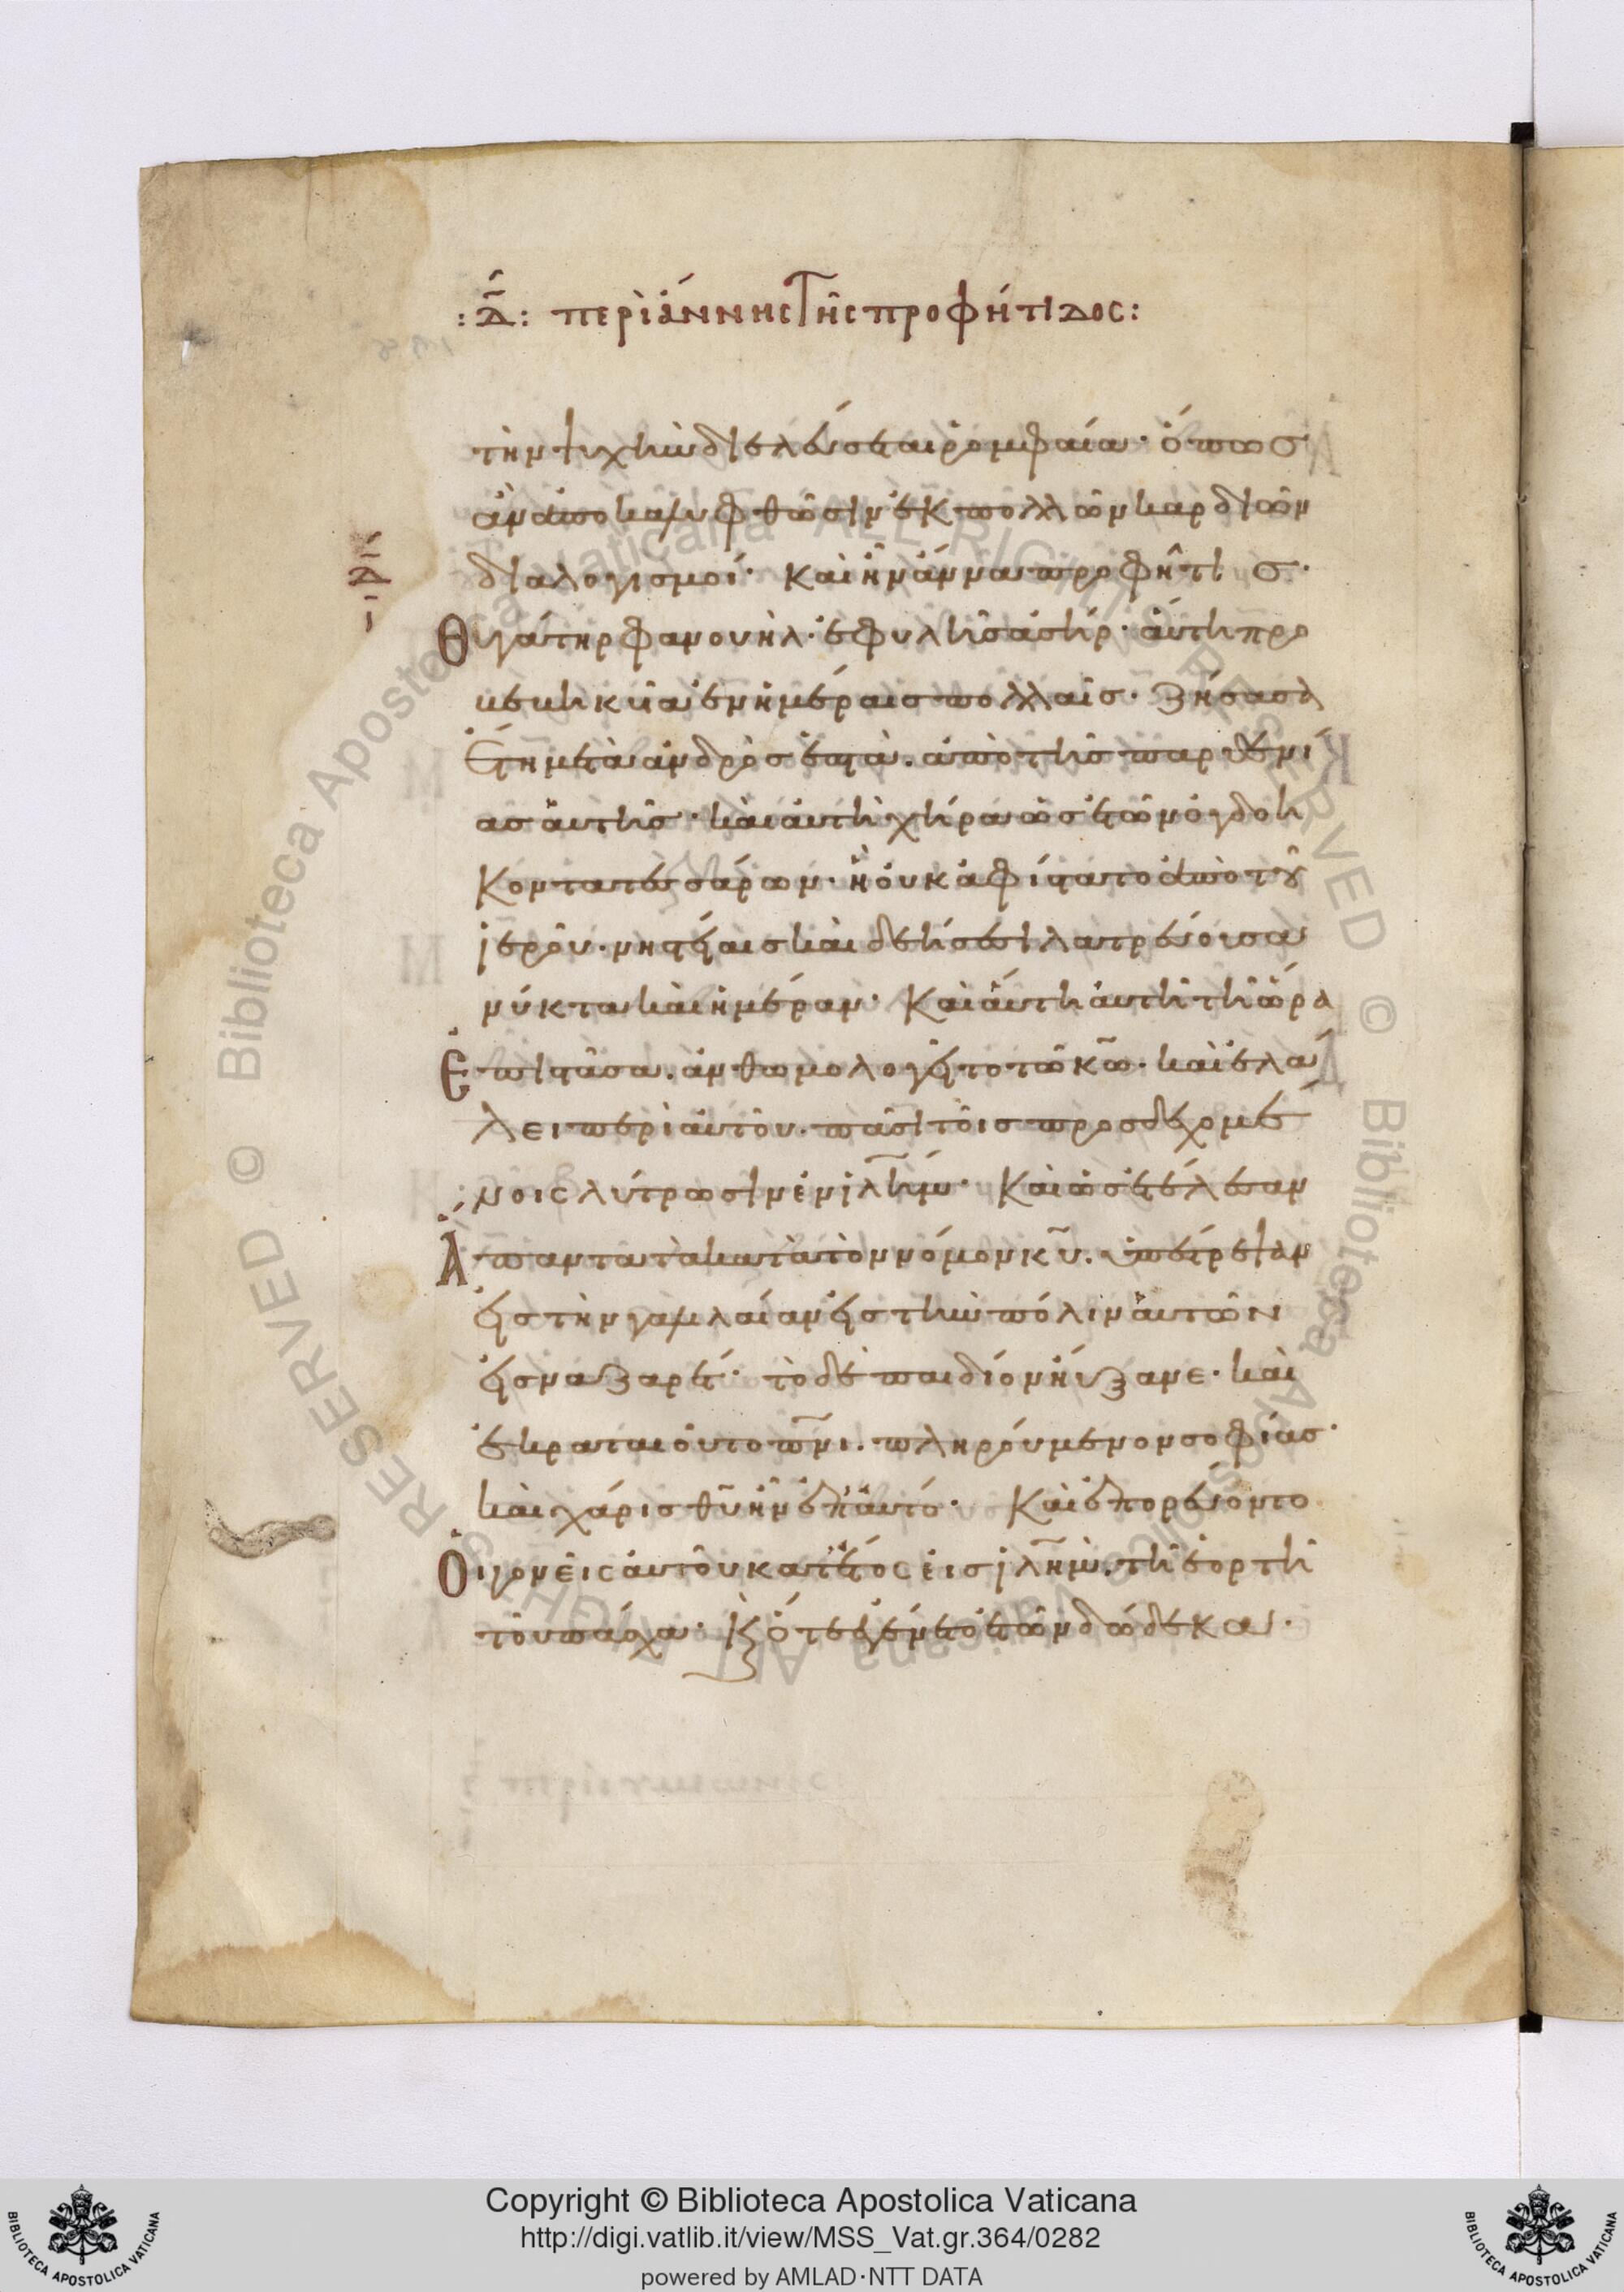 :Δ: περὶ ἄννης τῆς προφήτιδος:
τὴν ψυχὴν διελεύσεται ῥομφαία· ὅπως
ἂν ἀποκαλυφθῶσιν ἐκ πολλῶν καρδιῶν
διαλογισμοί· Καὶ ἦν ἄννα προφῆτις·
-Δ-
Θυγάτηρ φανουὴλ· ἐκ φυλῆς ἀσήρ· αὕτη προ
βεβηκυῖα ἐν ἡμέραις πολλαῖς· ζήσασα
ἔτη μετὰ ἀνδρὸς ἑπτὰ. ἀπὸ τῆς παρθενί
ας αὐτῆς· καὶ αὐτὴ χήρα ὡς ἐτῶν ὀγδοη
κοντατεσσάρων· ἣ οὐκ ἀφίστατο ἀπὸ τοῦ
ἱεροῦ· νηστείαις καὶ δεήσεσι λατρεύουσα
νύκτα καὶ ἡμέραν· Καὶ αὕτη αὐτῇ τῇ ὥρα
Ἐπιστᾶσα. ἀνθωμολογεῖτο τῶ κω̅· καὶ ἐλά
λει περὶ αὐτοῦ. πᾶσι τοῖς προσδεχομέ
νοις λύτρωσιν ἐν ιλη̅μ· Καὶ ὡς ἐτέλεσαν
Ἅπαντα τὰ κατὰ τὸν νόμον κυ̅. ὑπέστρεψαν
εἰς τὴν γαλιλαίαν εἰς τὴν πόλιν αὐτῶν
εἰς ναζαρέτ· τὸ δὲ παιδίον ηὔξανε· καὶ
ἐκραταιοῦτο πν̅ι. πληρούμενον σοφίας·
καὶ χάρις θυ̅ ἦν ἐπ αὐτό· Καὶ ἐπορεύοντο
Οἱ γονεῖς αὐτοῦ κατ ἔτος εἰς ιλη̅μ. τῇ ἑορτῇ
τοῦ πάσχα· Κ ὅτε ἐγένετο ἐτῶν δώδεκα·
Copyright © Biblioteca Apostolica Vaticana
http://digi.vatlib.it/view/MSS_Vat.gr.364/0282
powered by AMLAD·NTT DATA